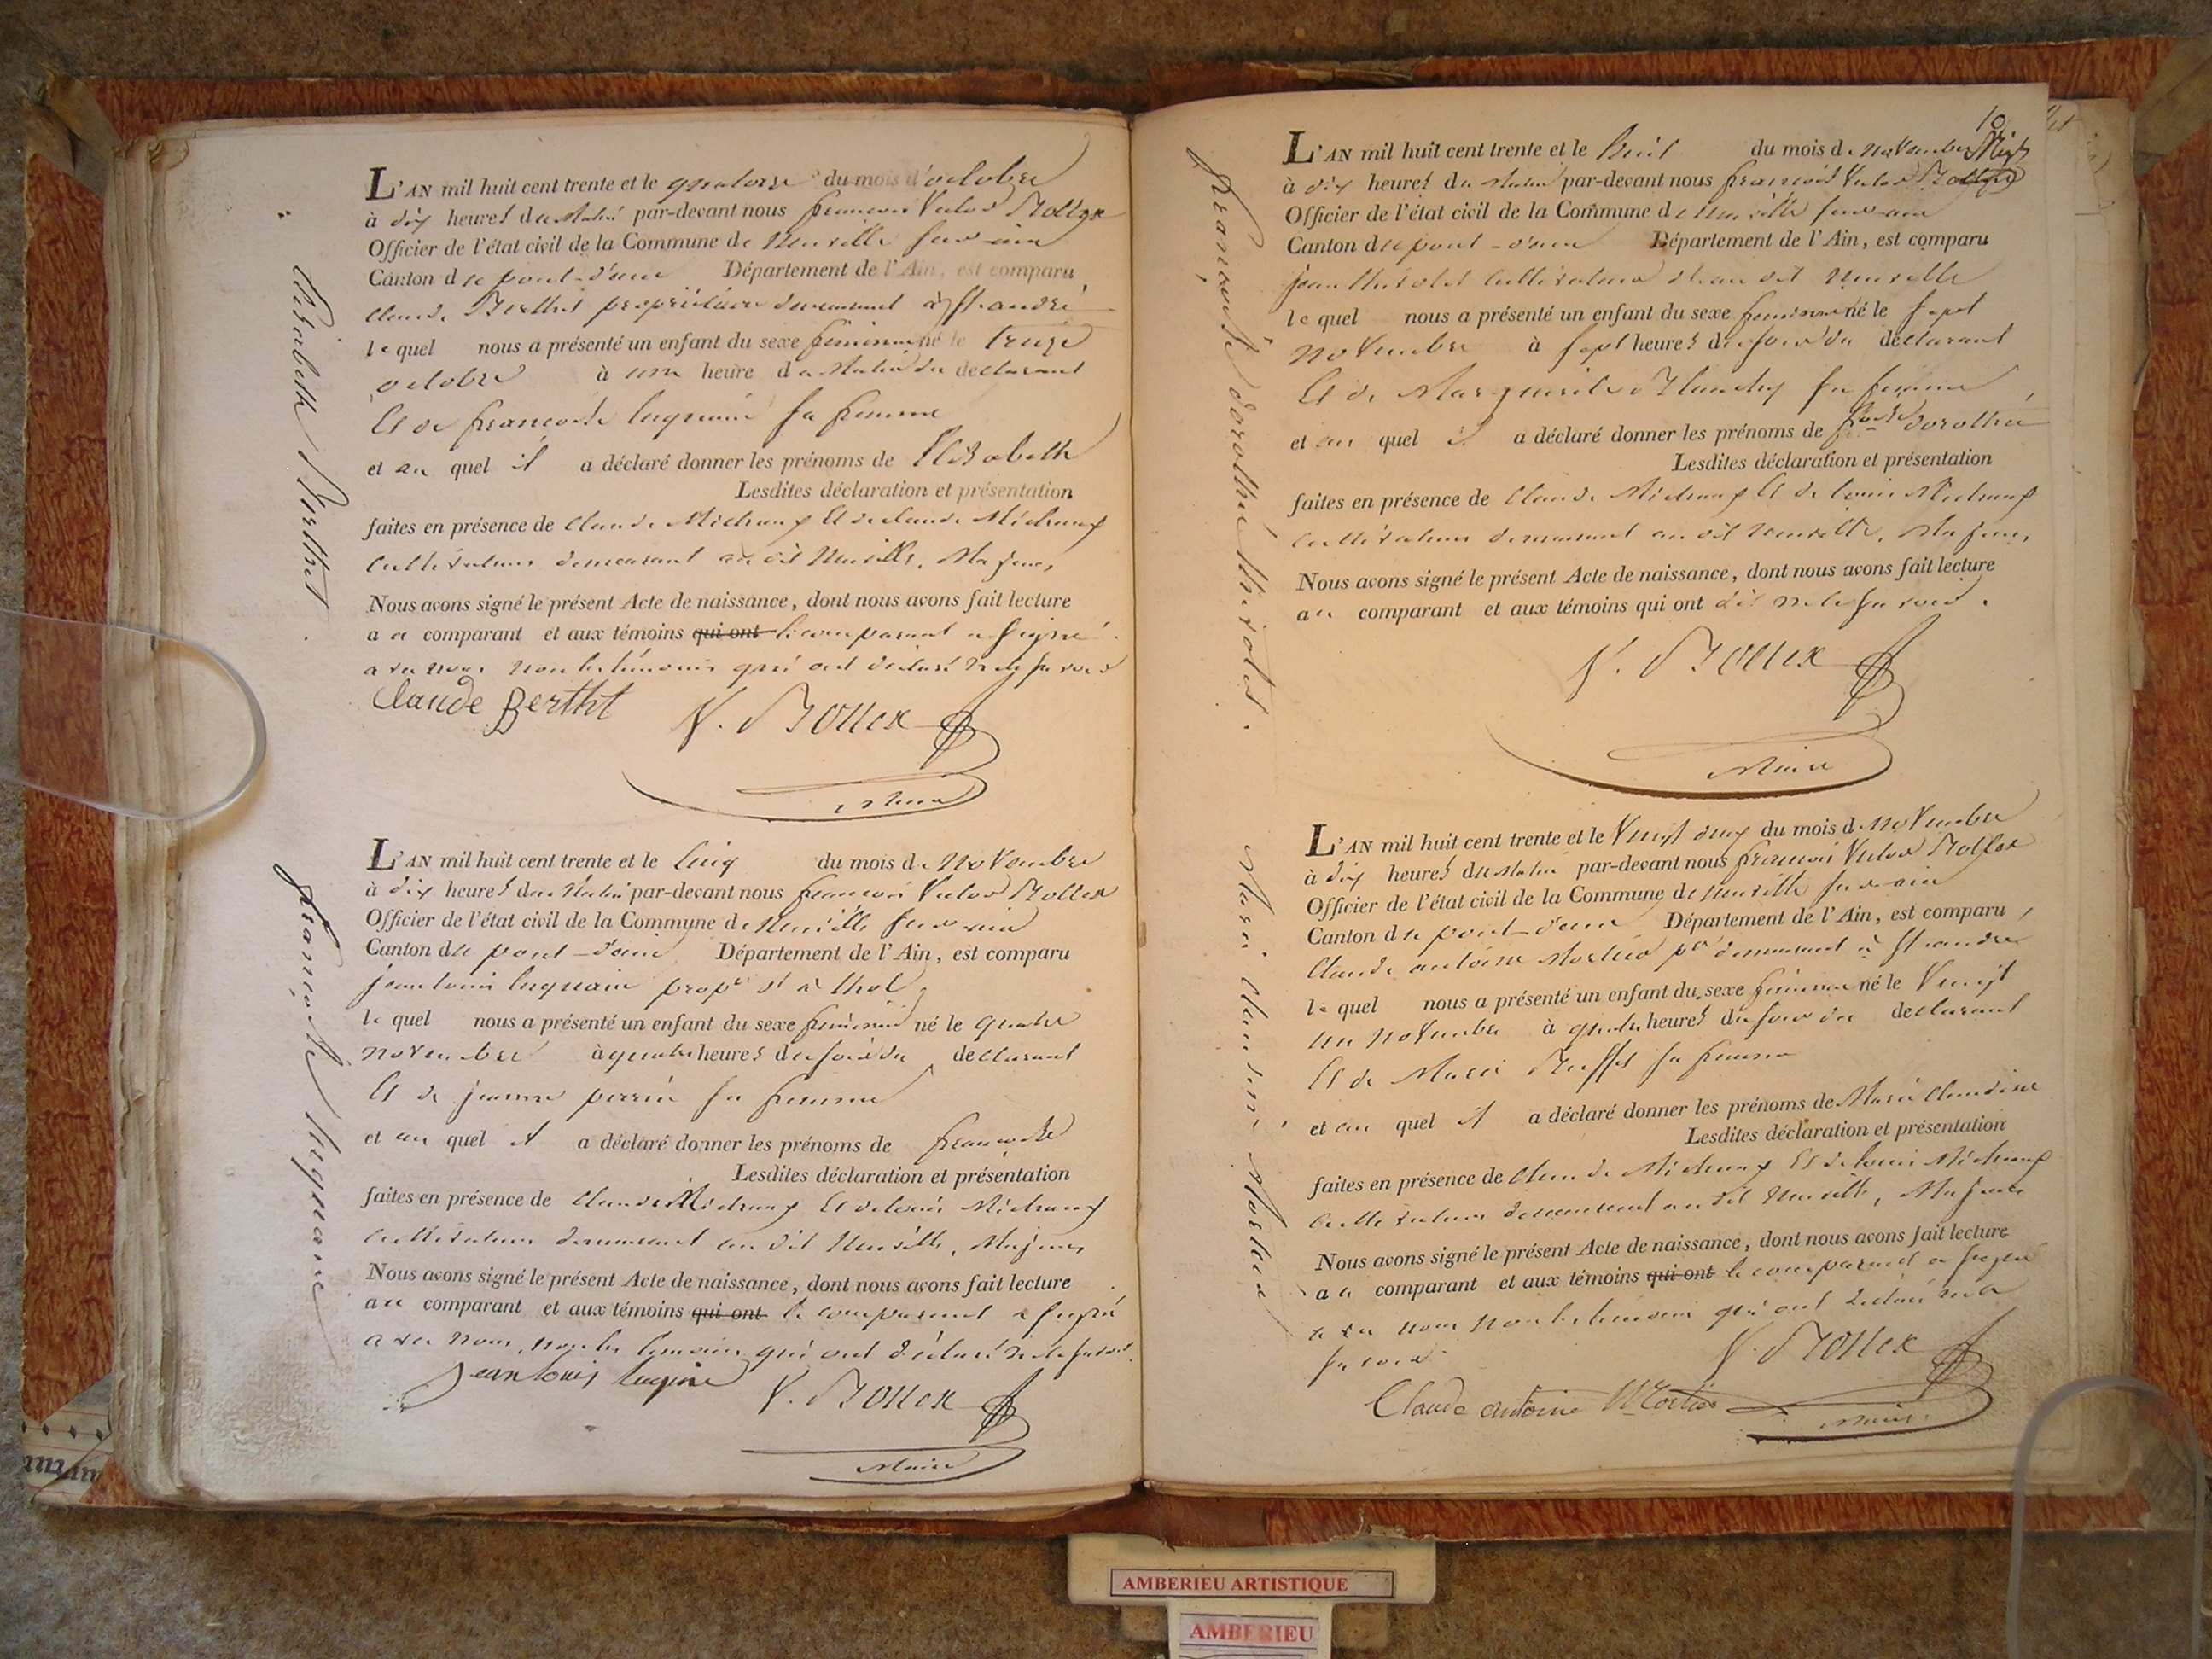 Elisabeth Berthet.
L'AN mil huit cent trente et le quatorze du mois d'octobre
à dix heures du Matin par-devant nous françois Victor Bollex
Officier de l'état civil de la Commune de Neuville sur ain
Canton de pont-d'ain Département de l'Ain, est comparu
Claude Berthet propriétaire demeurant à St andré
lequel nous a présenté un enfant du sexe feminin né le treize
octobre à une heure du Matin du declarant
Et de françoise luguain sa femme
et au quel il a déclaré donner les prénoms de Elisabeth
Lesdites déclaration et présentation
faites en présence de Claude Et de Claude
Cultivateurs demeurant au dit Neuville, Majeurs
Nous avons signé le présent Acte de naissance, dont nous avons fait lecture
au comparant et aux témoins qui ont le comparant a signé
avec nous non les témoins qui ont déclaré ne savoir
Claude Bertht V. Bollex
Maire
françoise luguaine
L'AN mil huit cent trente et le Cinq du mois de Novembre
à dix heures du Matin par-devant nous françois Victor Bollex
Officier de l'état civil de la Commune de Neuville sur ain
Canton de pont-d'ain Département de l'Ain, est comparu
jean louis luguain propre et à thol
lequel nous a présenté un enfant du sexe feminin né le quatre
novembre à quatre heures du soir du declarant
Et de jeanne perrin sa femme
et au quel il a déclaré donner les prénoms de françoise
Lesdites déclaration et présentation
faites en présence de Claude Et de louis
Cultivateurs demeurant au dit Neuville, Majeurs
Nous avons signé le présent Acte de naissance, dont nous avons fait lecture
au comparant et aux témoins qui ont le comparant a signé
avec nous, non les témoins qui ont déclaré ne le savoir.
jean louis lugine V. Bollex
Maire
10
françoise dorothée
L'AN mil huit cent trente et le huit du mois de novembre
à dix heures du Matin par-devant nous françois Victor Bollex
Officier de l'état civil de la Commune de Neuville sur ain
Canton de pont-d'ain Département de l'Ain, est comparu
jean Cultivateur au dit Neuville
lequel nous a présenté un enfant du sexe feminin né le sept
novembre à sept heures du soir du declarant
Et de Marguerite sa femme
et au quel il a déclaré donner les prénoms de dorothée
Lesdites déclaration et présentation
faites en présence de Claude Et de louis
Cultivateurs demeurant au dit Neuville, Majeurs,
Nous avons signé le présent Acte de naissance, dont nous avons fait lecture
au comparant et aux témoins qui ont dit ne le savoir.
V. Bollex
Maire
Marie Claudine Mortier
L'AN mil huit cent trente et le Vingt deux du mois de novembre
à dix heures du Matin par-devant nous françois Victor Bollex
Officier de l'état civil de la Commune de Neuville sur ain
Canton de pont-d'ain Département de l'Ain, est comparu
Claude antoine Mortier pre demeurant à St andré
lequel nous a présenté un enfant du sexe feminin né le Vingt
un novembre à quatre heures du soir du declarant
Et de Marie Buffet sa femme
et au quel il a déclaré donner les prénoms de Marie Claudine
Lesdites déclaration et présentation
faites en présence de Claude Et de louis
Cultivateurs demeurant au dit Neuville, Majeurs
Nous avons signé le présent Acte de naissance, dont nous avons fait lecture
au comparant et aux témoins qui ont le comparant a signé
avec nous non les témoins qui ont déclaré ne le
savoir.
V. Bollex
Claude antoine Mortier
Maire
AMBERIEU ARTISTIQUE
AMBERIEU